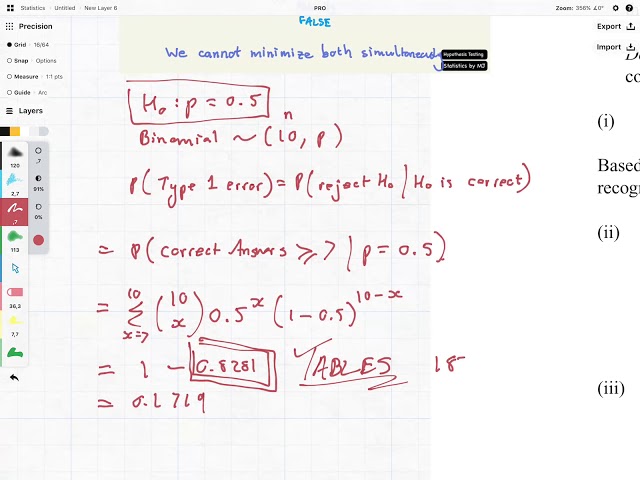 Statistics · Untitled · New Layer 6
PRO
Zoom: 356% ∠0°
Precision
Grid • 16/64
Snap • Options
Measure • 1:1 pts
Guide • Arc
Layers
,7
120
91%
2,7
0%
,7
113
36,3
7,7
FALSE
We cannot minimize both simultaneously
Hypothesis Testing
Statistics by MJ
H₀ : p = 0.5
n
Binomial ~ (10, p)
P(Type 1 error) = P(reject H₀ | H₀ is correct)
= P(correct Answers ⩾ 7 | p = 0.5)
= 10 Σ x=7 (10 x) 0.5^x (1 - 0.5)^10-x
= 1 - 0.8281 TABLES 18
= 0.1719
Export
Import
co
(i)
Based
recogn
(ii)
(iii)